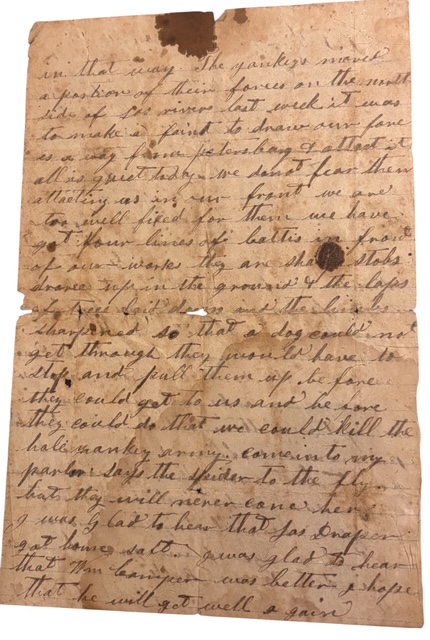 in that way The yankeys moved
a portion of their forces on the north
side of Jas river last week it was
to make a faint to draw our forc
es a way from petersburg & attact it
all is quiet today we do not fear them
attacting us in our front we are
too well fixed for them we have
got four lines of battis in front
of our works they are sharp stobs
drove up in the ground & the laps
of trees laid down and the limbs
sharpened so that a dog could not
get through they would have to
stop and pull them up be fore
they could get to us and be fore
they could do that we could kill the
hole yankey army come in to my
parlor says the spider to the fly
but they will never come here
I was glad to hear that Jas Draper
got home saft I was glad to hear
that Wm Camper was better I hope
that he will get well a gain